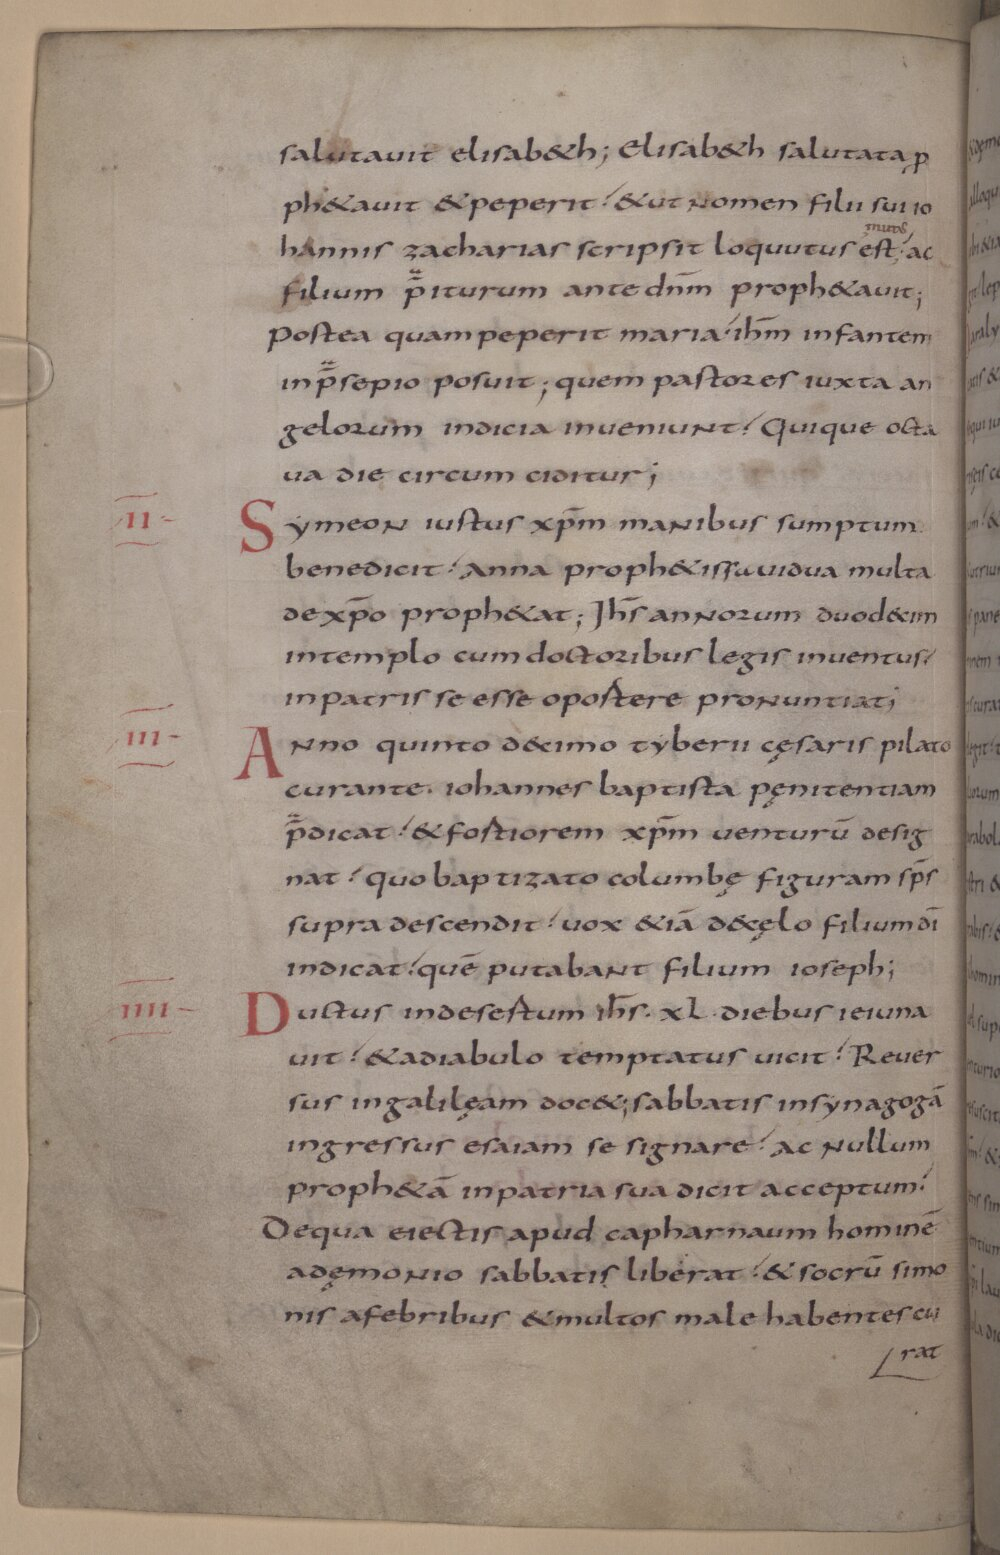 salutauit elisab&h; Elisab&h salutata p
ph&auit & peperit & ut nomen filii sui io
mutus
hannis zacharias scripsit loquutus est ac
filium p̄iturum ante dn̄m proph&auit;
Postea quam peperit maria ih̄m infantem
in p̄sepio posuit; quem pastores iuxta an
gelorum indicia inueniunt Quique octa
ua die circum ciditur;
II
Symeon iustus xp̄m manibus sumptum
benedicit Anna proph&issa uidua multa
de xp̄o proph&at; Ih̄s annorum duod&im
in templo cum doctoribus legis inuentus
in patris se esse opostere pronuntiat;
III
Anno quinto d&imo tyberii cęsaris pilato
curante. iohannes baptista pęnitentiam
p̄dicat & fostiorem xp̄m uenturū desig
nat quo baptizato columbę figuram sp̄s
supra descendit uox &iā d&ęlo filium dī
indicat quē putabant filium ioseph;
IIII
Dustus in desestum ih̄s. xl. diebus ieiuna
uit & a diabulo temptatus uicit Reuer
sus in galilęam doc&; sabbatis in synagogā
ingressus esaiam se signare ac nullum
proph&ā in patria sua dicit acceptum
De qua eiectis apud capharnaum hominē
a dęmonio sabbatis liberat & socrū simo
nis a febribus & multos male habentes cu
rat